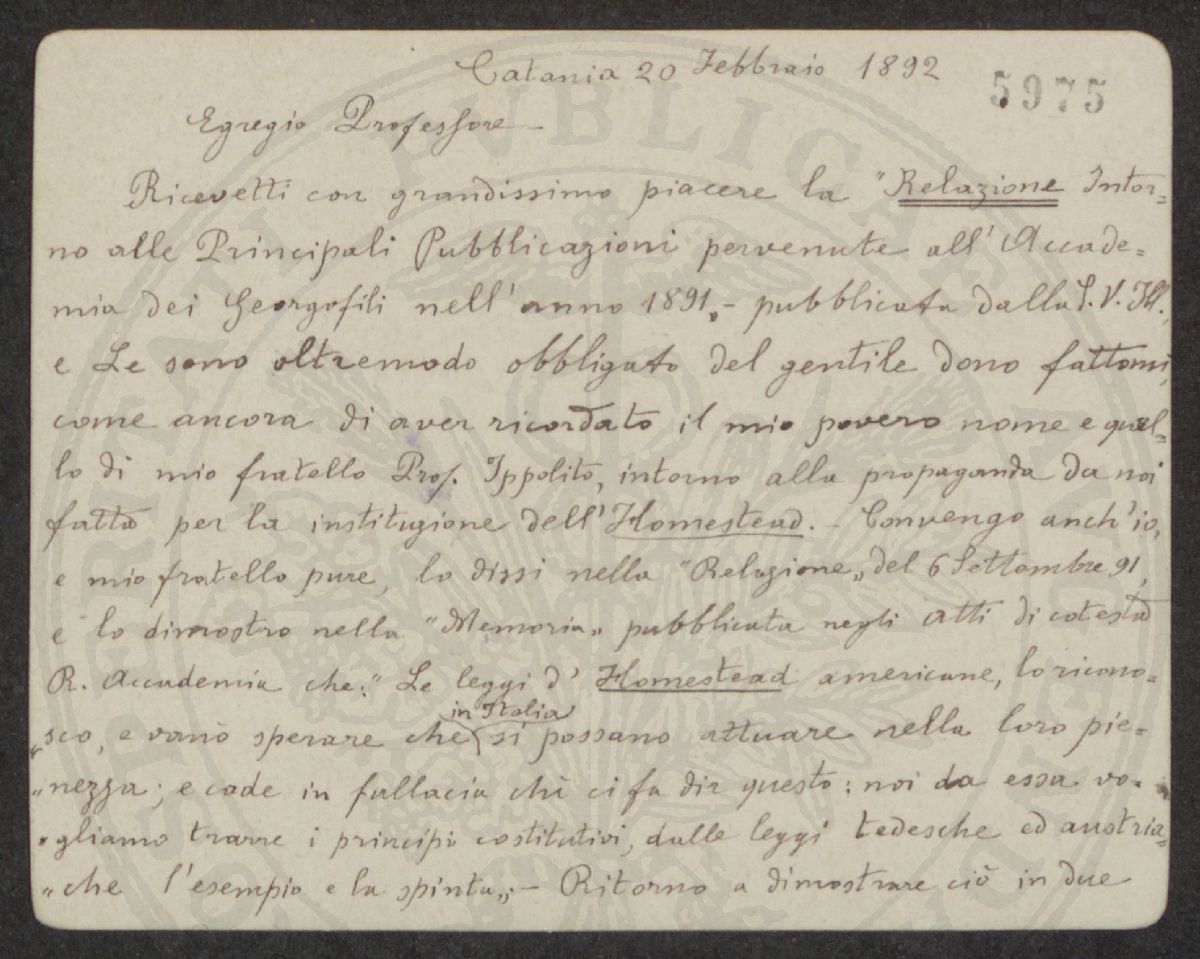 Catania 20 Febbraio 1892
5975
Egregio Professore —
Ricevetti con grandissimo piacere la "Relazione Intor=
no alle Principali Pubblicazioni pervenute all'Accade=
mia dei Georgofili nell'anno 1891„ — pubblicata dalla S. V. Ill.,
e Le sono oltremodo obbligato del gentile dono fattomi,
come ancora di aver ricordato il mio povero nome e quel=
lo di mio fratello Prof. Ippolito, intorno alla propaganda da noi
fatta per la instituzione dell'Homestead. — Convengo anch'io,
e mio fratello pure, lo dissi nella "Relazione„ del 6 Settembre 91,
e lo dimostro nella "Memoria„ pubblicata negli Atti di cotesta
R. Accademia che: "Le leggi d'Homestead americane, lo ricono=
in Italia
"sco, e vano sperare che si possano attuare nella loro pie=
"nezza; e cade in fallacia chi ci fa dir questo: noi da essa vo=
"gliamo trarre i principi costitutivi, dalle leggi tedesche ed austria=
"che l'esempio e la spinta„; — Ritorno a dimostrare ciò in due